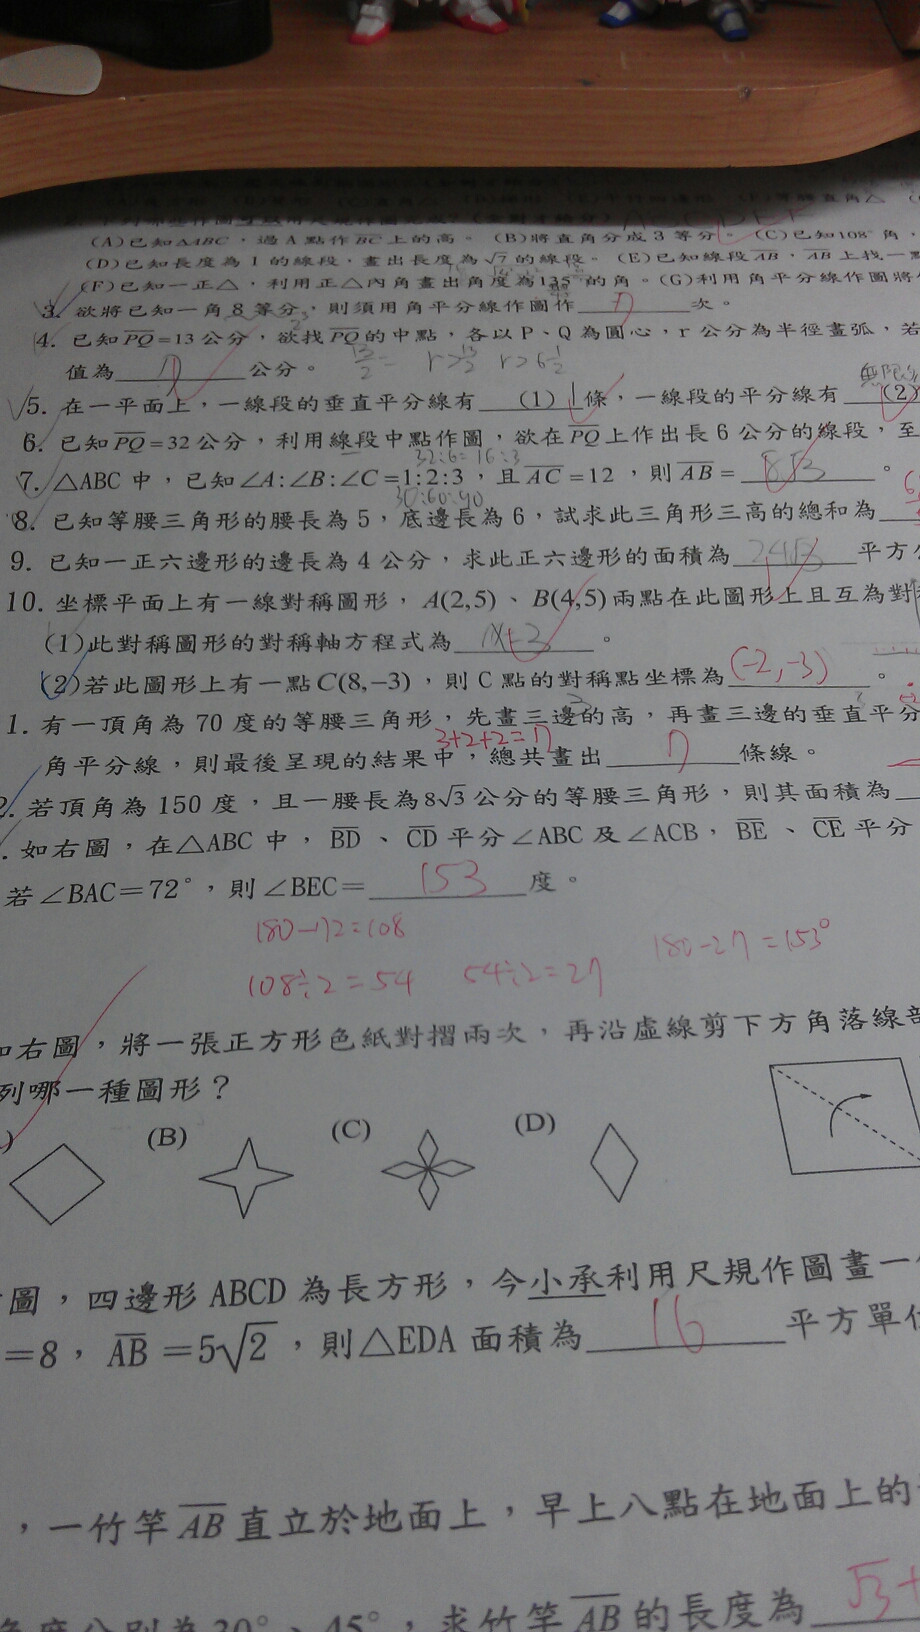 (A)已知△ABC，過 A 點作BC上的高。 (B)將直角分成 3 等分。 (C)已知108°角，
(D)已知長度為 1 的線段，畫出長度為√7的線段。 (E)已知線段AB，AB上找一
(F)已知一正△，利用正△內角畫出角度為135°的角。(G)利用角平分線作圖將
3. 欲將已知一角 8 等分，則須用角平分線作圖作 7 次。
4. 已知PQ=13公分，欲找PQ的中點，各以 P、Q 為圓心，r 公分為半徑畫弧，若
13/2= r>13/2 r>6 1/2
值為 7 公分。
5. 在一平面上，一線段的垂直平分線有 (1) 1 條，一線段的平分線有 無限多 (2)
6. 已知PQ=32公分，利用線段中點作圖，欲在PQ上作出長 6 公分的線段，至
32:6=16:3
7. △ABC 中，已知∠A:∠B:∠C=1:2:3，且AC=12，則AB= 8√3 。
30:60:90
8. 已知等腰三角形的腰長為 5，底邊長為 6，試求此三角形三高的總和為
9. 已知一正六邊形的邊長為 4 公分，求此正六邊形的面積為 24√3 平方
10. 坐標平面上有一線對稱圖形，A(2,5)、B(4,5)兩點在此圖形上且互為對
(1)此對稱圖形的對稱軸方程式為 。
(2)若此圖形上有一點C(8,−3)，則 C 點的對稱點坐標為 (-2,-3) 。
1. 有一頂角為 70 度的等腰三角形，先畫三邊的高，再畫三邊的垂直平分
3+2+2=7
角平分線，則最後呈現的結果中，總共畫出 7 條線。
2. 若頂角為 150 度，且一腰長為8√3公分的等腰三角形，則其面積為
. 如右圖，在△ABC 中，BD、CD平分∠ABC 及∠ACB，BE、CE平分
若∠BAC=72°，則∠BEC= 153 度。
180-72=108
108÷2=54 54÷2=27 180-27=153°
如右圖，將一張正方形色紙對摺兩次，再沿虛線剪下方角落線部
列哪一種圖形？
) (B) (C) (D)
圖，四邊形 ABCD 為長方形，今小承利用尺規作圖畫一
=8，AB=5√2，則△EDA 面積為 16 平方單位
，一竹竿AB直立於地面上，早上八點在地面上的
角度分別為30°、45°，求竹竿AB的長度為 √3+